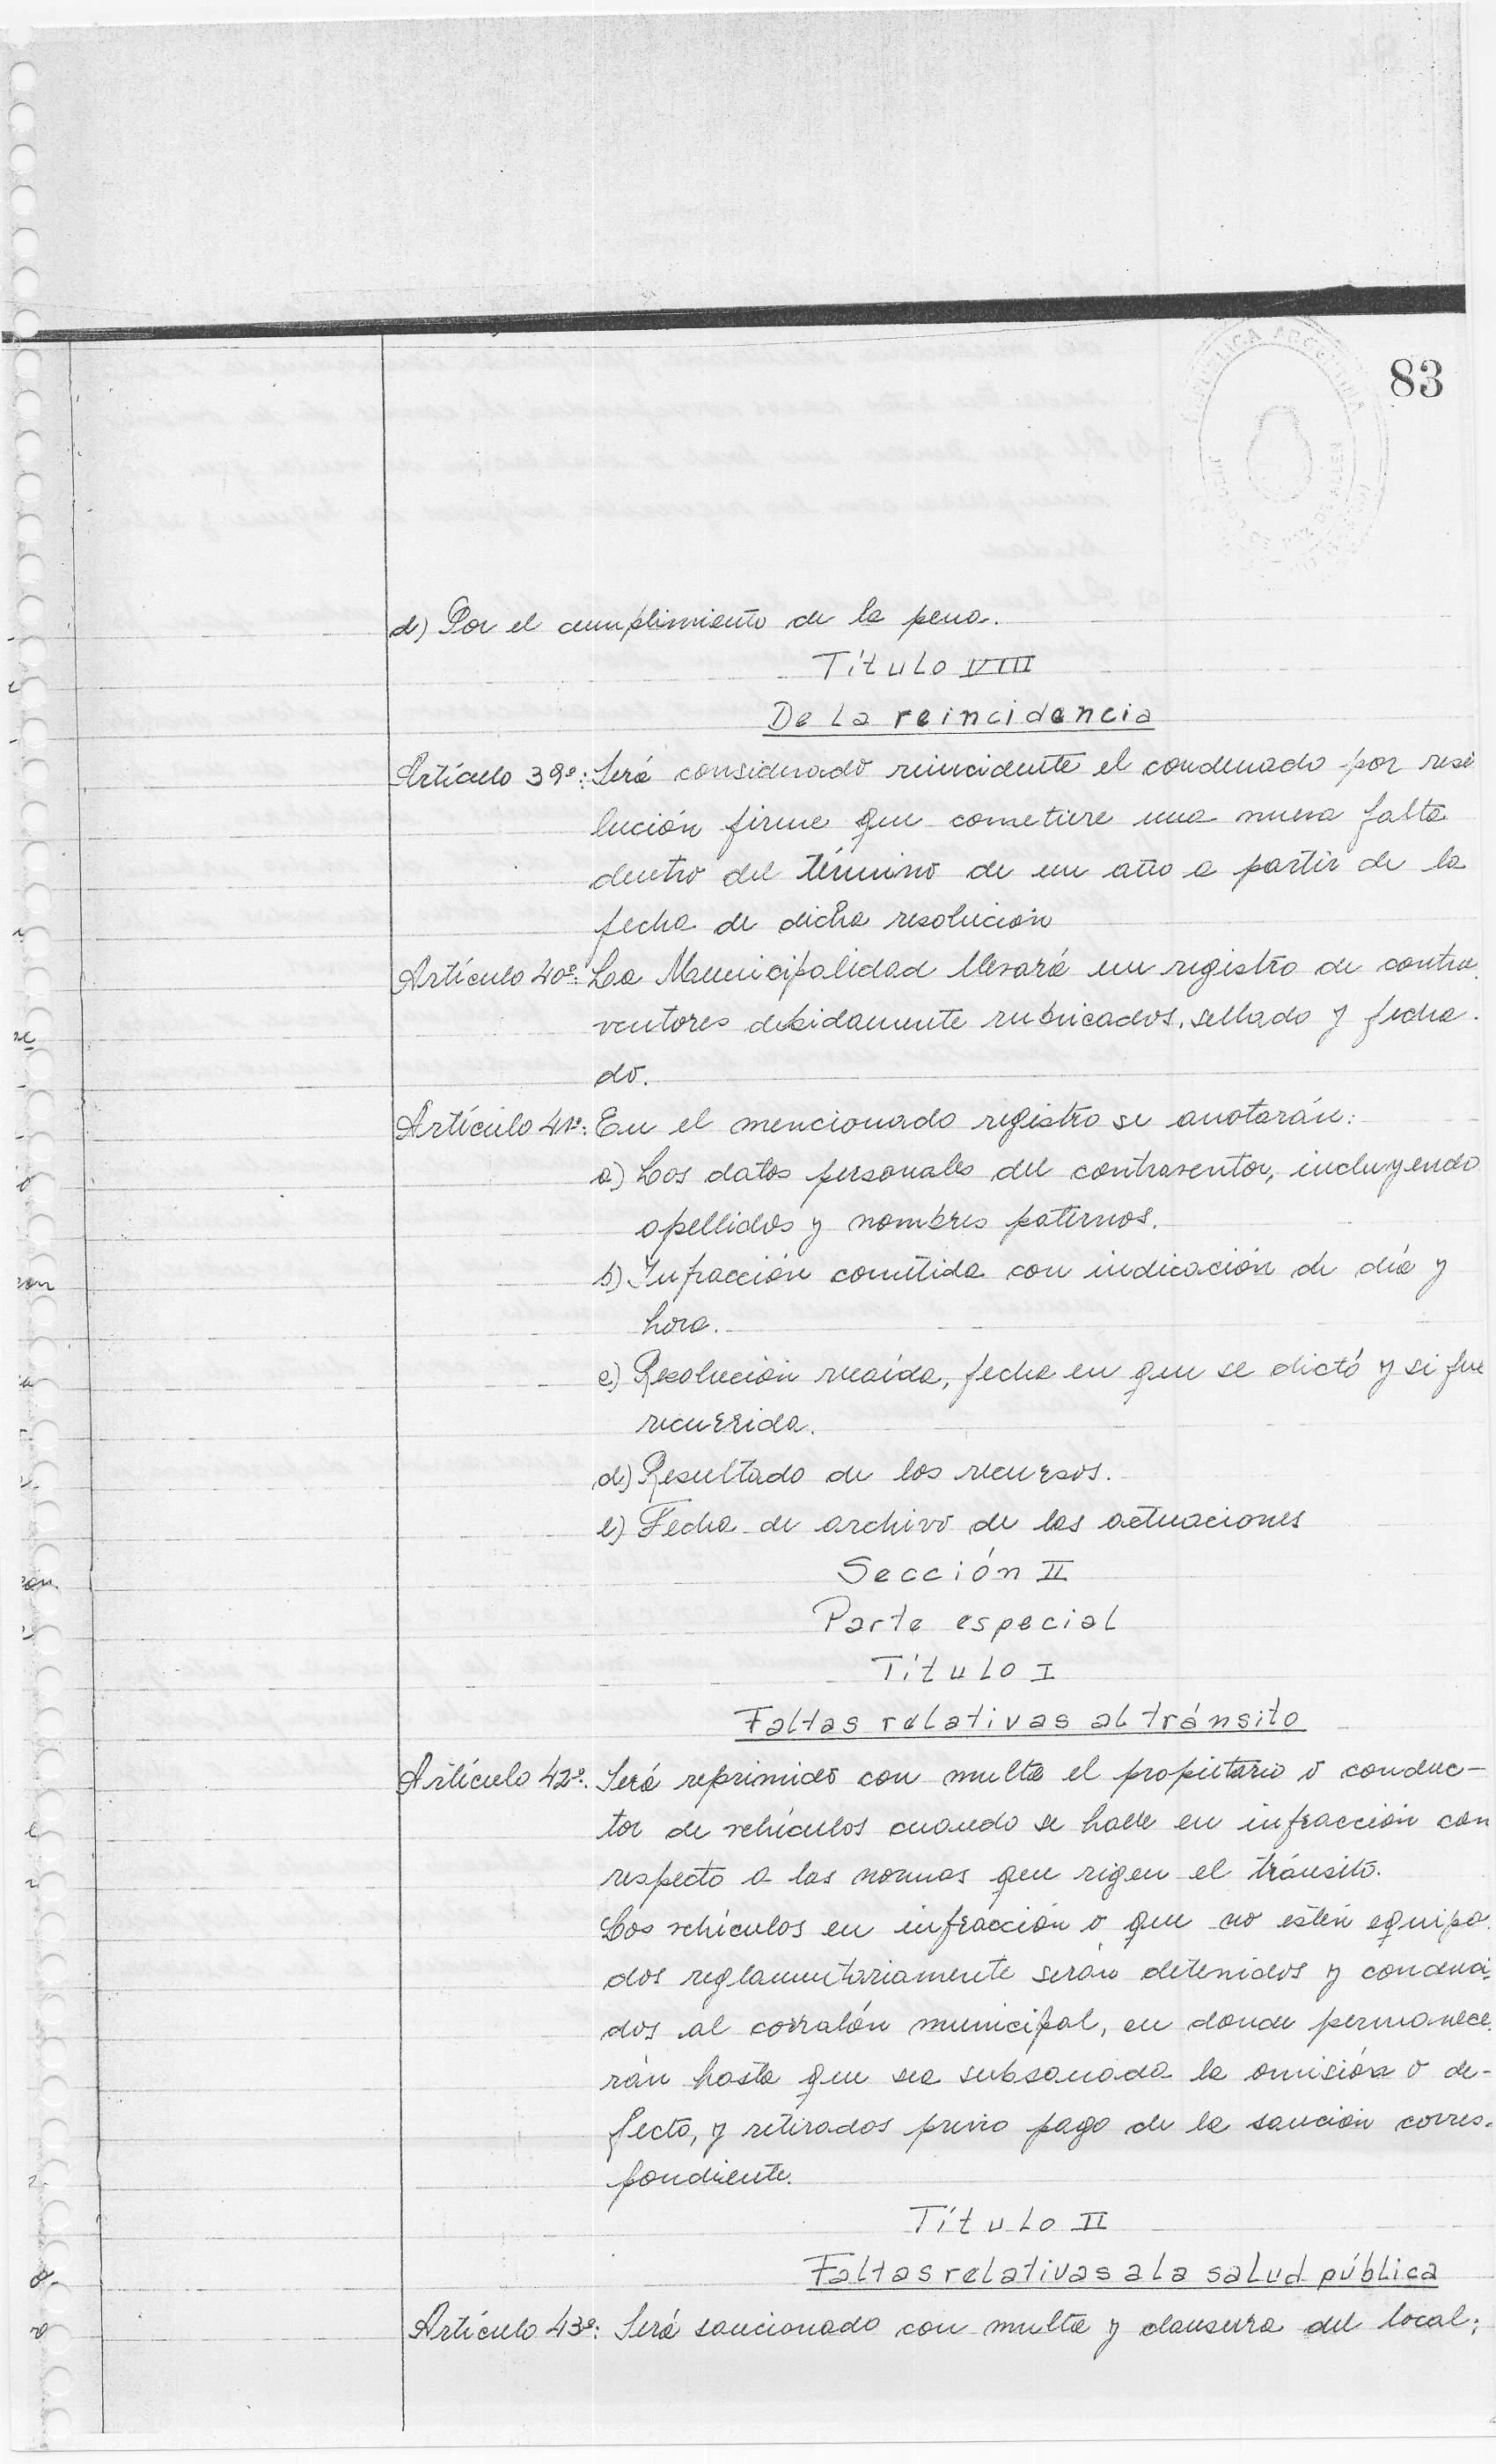 83
d) Por el cumplimiento de la pena.
Título VIII
De la reincidencia
Artículo 39º: Será considerado reincidente el condenado por reso
lución firme que cometiere una nueva falta
dentro del término de un año a partir de la
fecha de dicha resolución
Artículo 40º: La Municipalidad llevará un registro de contra.
ventores debidamente rubricados, sellado y fecha.
do.
Artículo 41º: En el mencionado registro se anotarán:
a) Los datos personales del contraventor, incluyendo
apellidos y nombres paternos.
b) Infracción cometida con indicación de día y
hora.
c) Resolución recaída, fecha en que se dictó y si fue
recurrida.
d) Resultado de los recursos.
e) Fecha de archivo de las actuaciones
Sección II
Parte especial
Título I
Faltas relativas al tránsito
Artículo 42º: Será reprimido con multa el propietario o conduc-
tor de vehículos cuando se halle en infracción con
respecto a las normas que rigen el tránsito.
Los vehículos en infracción o que no estén equipa.
dos reglamentariamente serán detenidos y conduci.
dos al corralón municipal, en donde permanece.
rán hasta que sea subsanada la omisión o de-
fecto, y retirados previo pago de la sanción corres.
pondiente.
Título II
Faltas relativas a la salud pública
Artículo 43º: Será sancionado con multa y clausura del local: